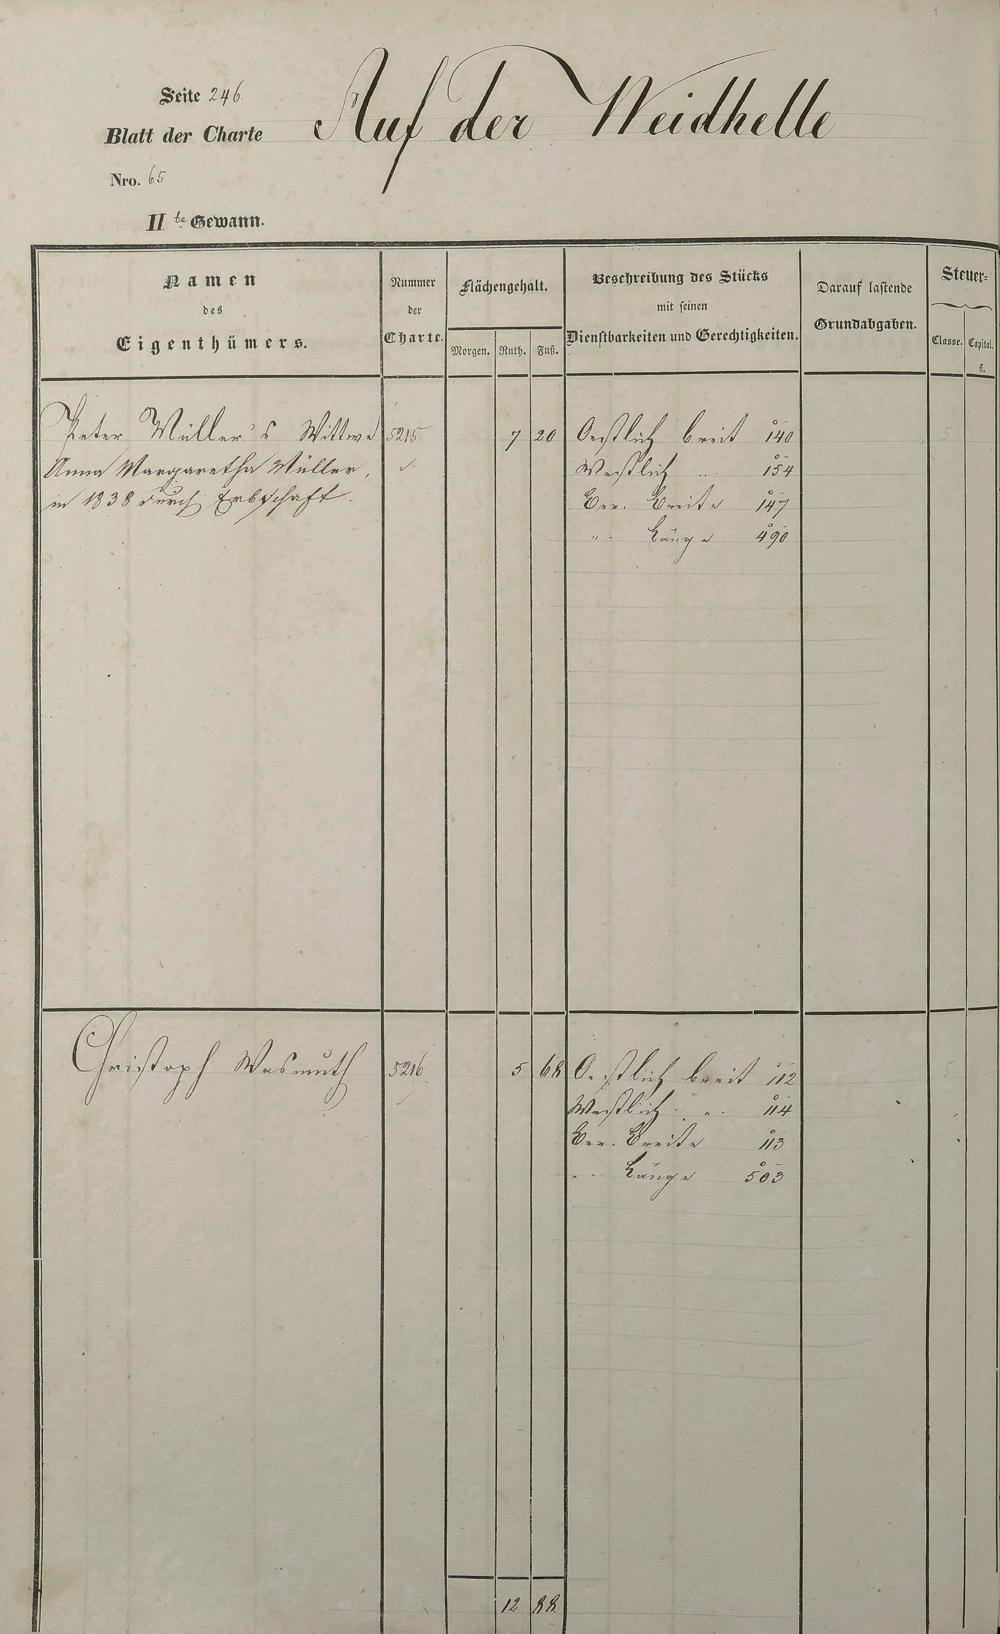 Seite 246.
Auf der Weidhelle
Blatt der Charte
Nro. 65
II te Gewann.
Namen
des
Eigenthümers.
Nummer
der
Charte.
Flächengehalt.
Morgen. Ruth. Fuß.
Beschreibung des Stücks
mit seinen
Dienstbarkeiten und Gerechtigkeiten.
Darauf lastende
Grundabgaben.
Steuer-
Classe. Capital.
fl.
Peter Müller's Wittwe 5215 7 20 Oestlich breit 140 5
Anna Margaretha Müller, Westlich " 154
in 1838 durch Erbschaft. Ber. Breite 147
" Länge 490
Christoph Wasmuth 5216 5 68 Oestlich breit 112 5
Westlich " 114
Ber. Breite 113
" Länge 503
12 88